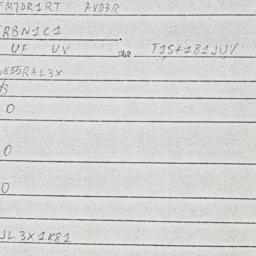 FM7DR1RT AVD3R
RBN1C1
UF UV T1S+1B1JUY
E55RAL3X
0
0
0
JL3X1K81